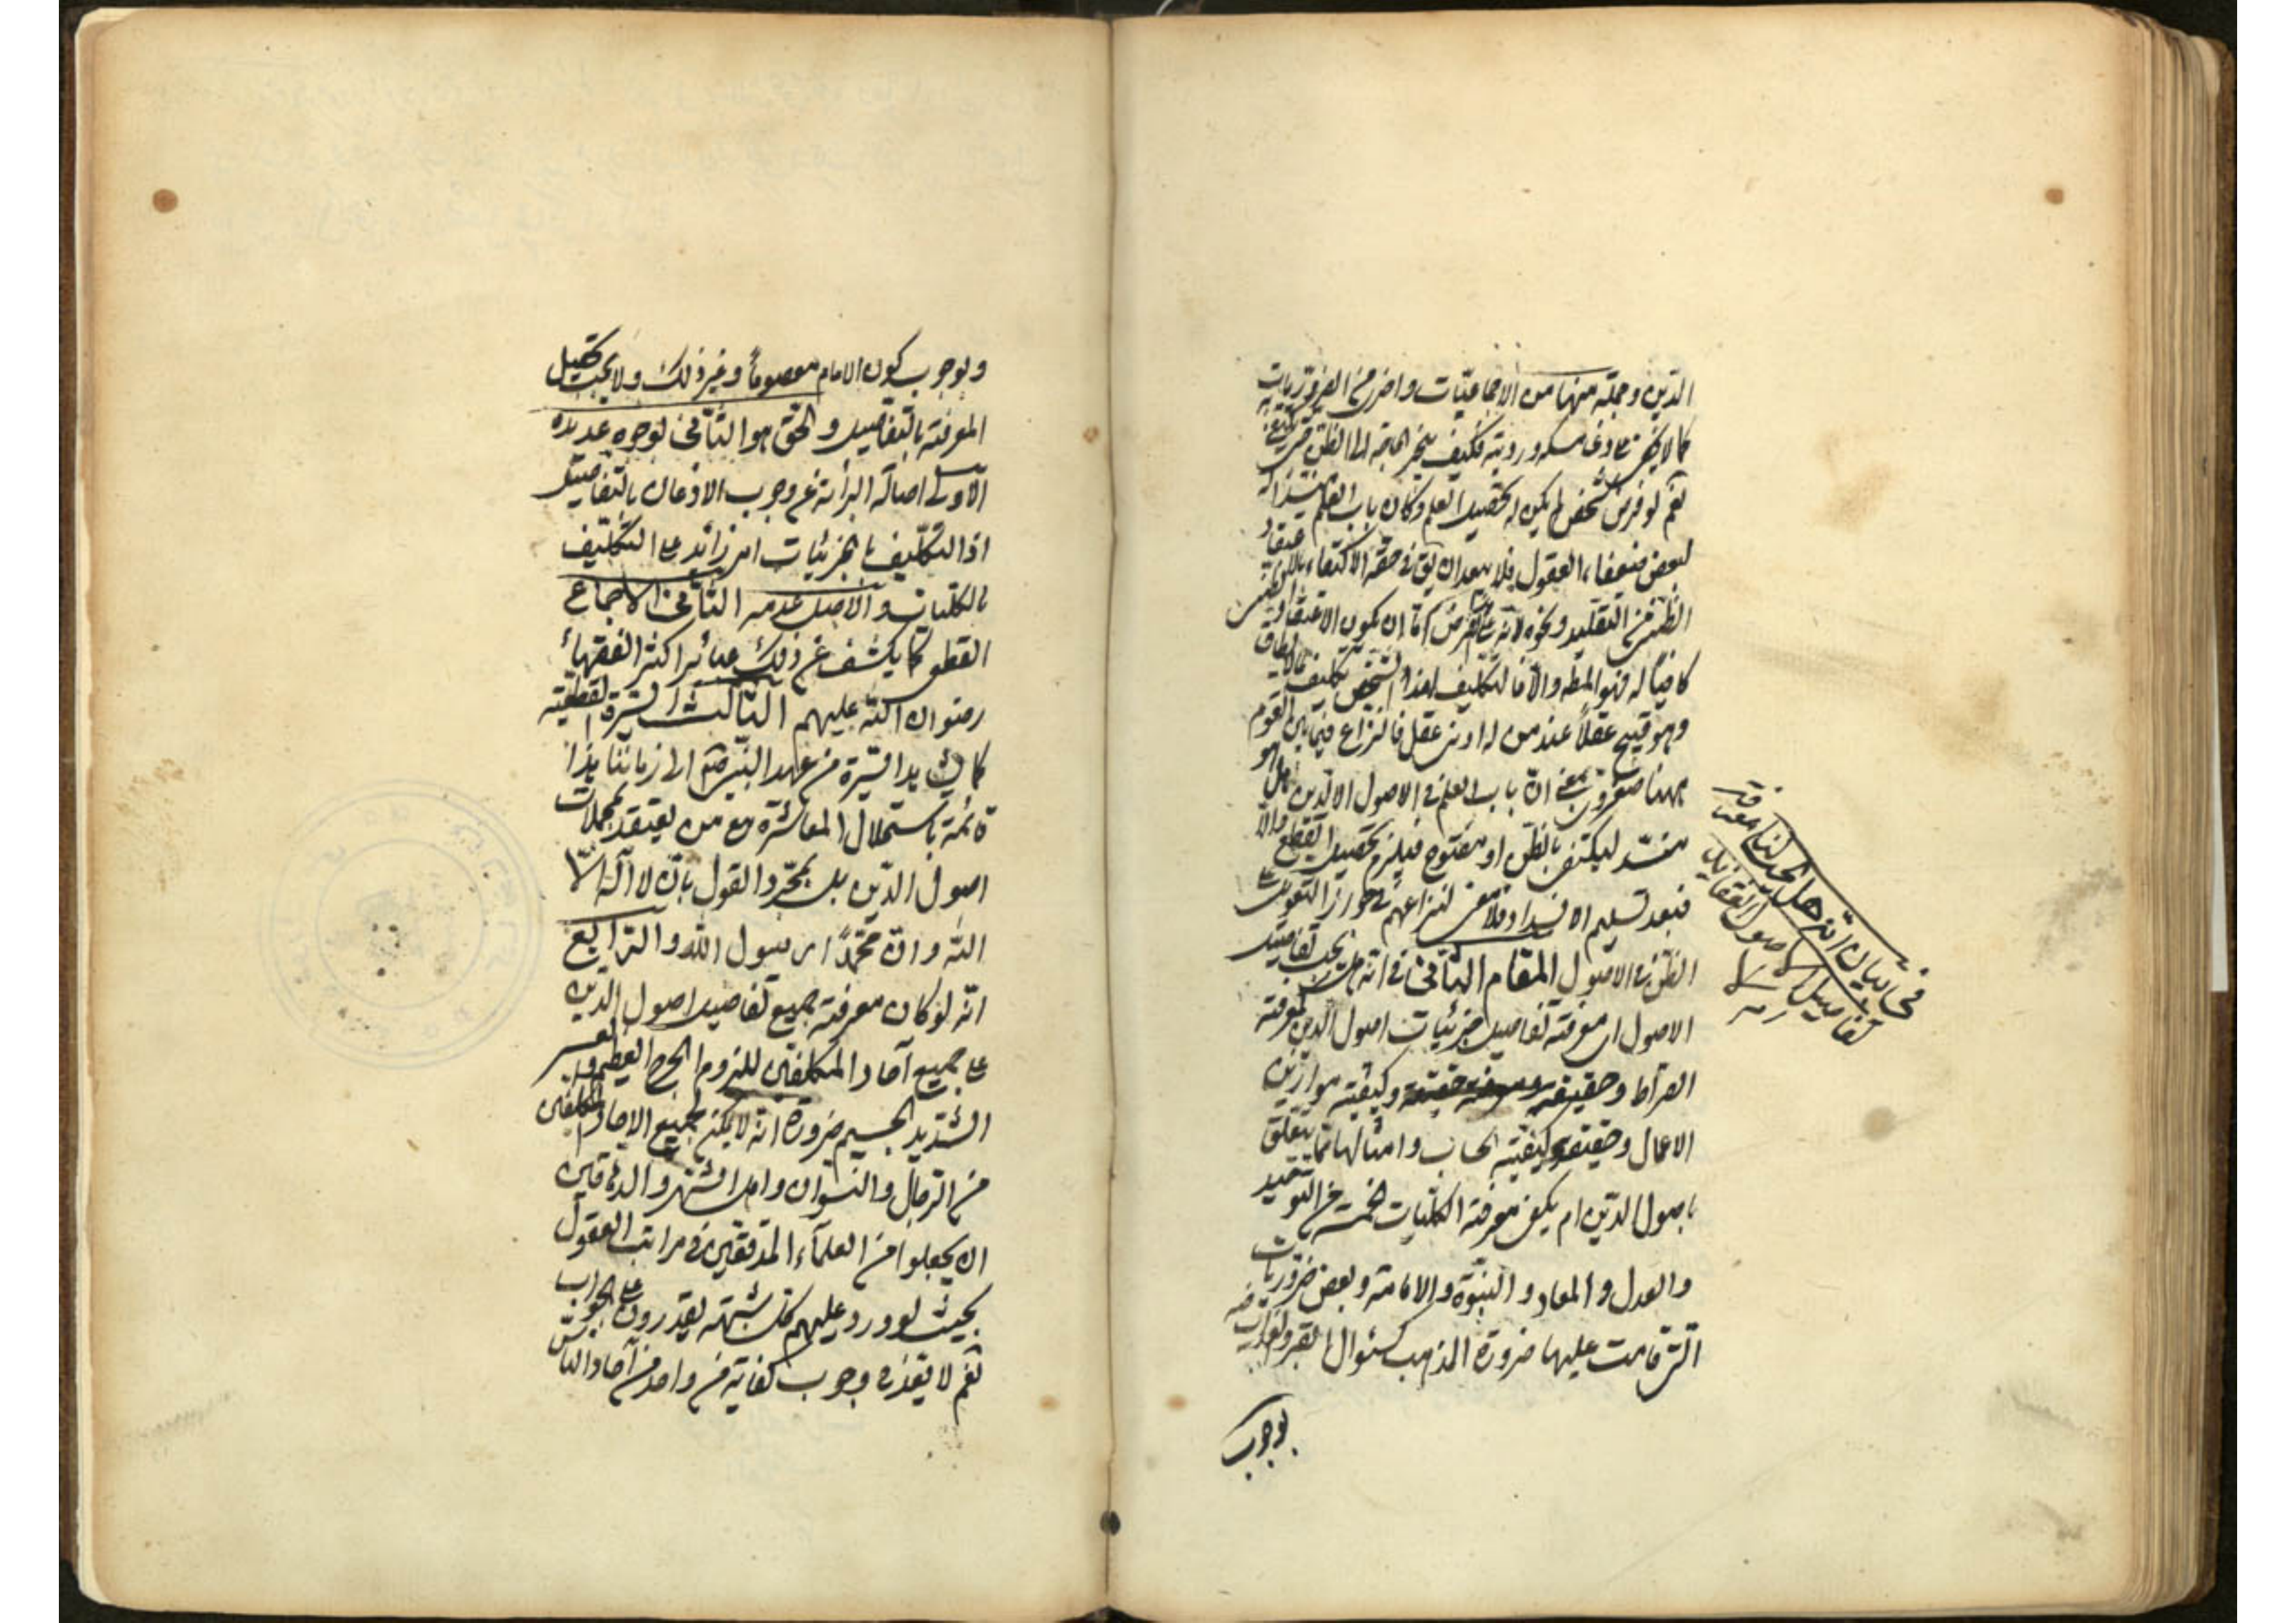 الدين وجملة منها من الاجماعيات واخرى من الضروريات
كما لا يخفى على ذى مسكة وروية فكيف ينجر الحاجة الى الظن حتى يكتفى به
نعم لو فرض شخص لم يكن له تحصيل العلم وكان باب العلم منسدا له
لبعض ضعفاء العقول فلا يبعد ان يق فى حقه الاكتفاء بالاعتقاد
الظنى من التقليد ونحوه لانه على الفرض اما ان يكون الاعتقاد الظنى
كافيا له فهو المط والا فالتكليف لهذا الشخص تكليف بما لا يطاق
وهو قبيح عقلاً عند من له ادنى عقل فالنزاع فيما بين القوم
ههنا صغروى بمعنى ان باب العلم فى الاصول الدين هل هو
منسد ليكتفى بالظن او مفتوح فيلزم تحصيل القطع والا
فبعد تسليم الانسداد فلا معنى لنزاعهم فى جواز التعويل على
الظن فى الاصول المقام الثانى فى انه هل يجب تفاصيل
الاصول اى معرفة تفاصيل جزئيات اصول الدين كمعرفة
الصراط وحقيقته وكيفية موازين
الاعمال وحقيقة وكيفية الحساب وامثالها مما يتعلق
باصول الدين ام يكفى معرفة الكليات الخمسة من التوحيد
والعدل والمعاد و النبوة والامامة وبعض ضروريات
التى قامت عليها ضرورة المذهب كسئوال القبر
بوجوب
فى بيان انه هل يجب لنا معرفة
تفاصيل اصول العقايد
ام لا
وبوجوب كون الامام معصوماً وغير ذلك ولا يجب تحصيل
المعرفة بالتفاصيل و الحق هو الثانى لوجوه عديدة
الاولى اصالة البرائة عن وجوب الاذعان بالتفاصيل
اذ التكليف بالجزئيات امر زائد على التكليف
بالكليات والاصل عدمه الثانى الاجماع
القطعى كما يكشف عن ذلك عبائر اكثر الفقهاء
رضوان الله عليهم الثالث السيرة القطعية
السيرة من عهد النبى ص الى زماننا هذا
قائمة باستحلال المعاشرة مع من يعتقد بمجملات
اصول الدين بل بمجرد القول بان لا اله الا
الله وان محمداً رسول الله والرابع
انه لو كان معرفة جميع تفاصيل اصول الدين
على جميع آحاد المكلفين للزوم الحرج العظيم والعسر
الشديد الجسيم ضرورة انه لا يمكن لجميع الاحاد المكلفين
من الرجال والنسوان واهل والدهاقين
ان يجعلوا من العلماء المدققين فى مراتب العقول
بحيث لو ورد عليهم كل شبهة يقدرون على الجواب
نعم لا يقدح وجوب كفاية من واحد من آحاد الناس